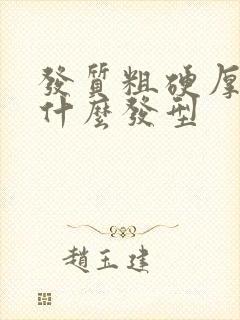 發質粗硬厚
什麼發型
趙玉建